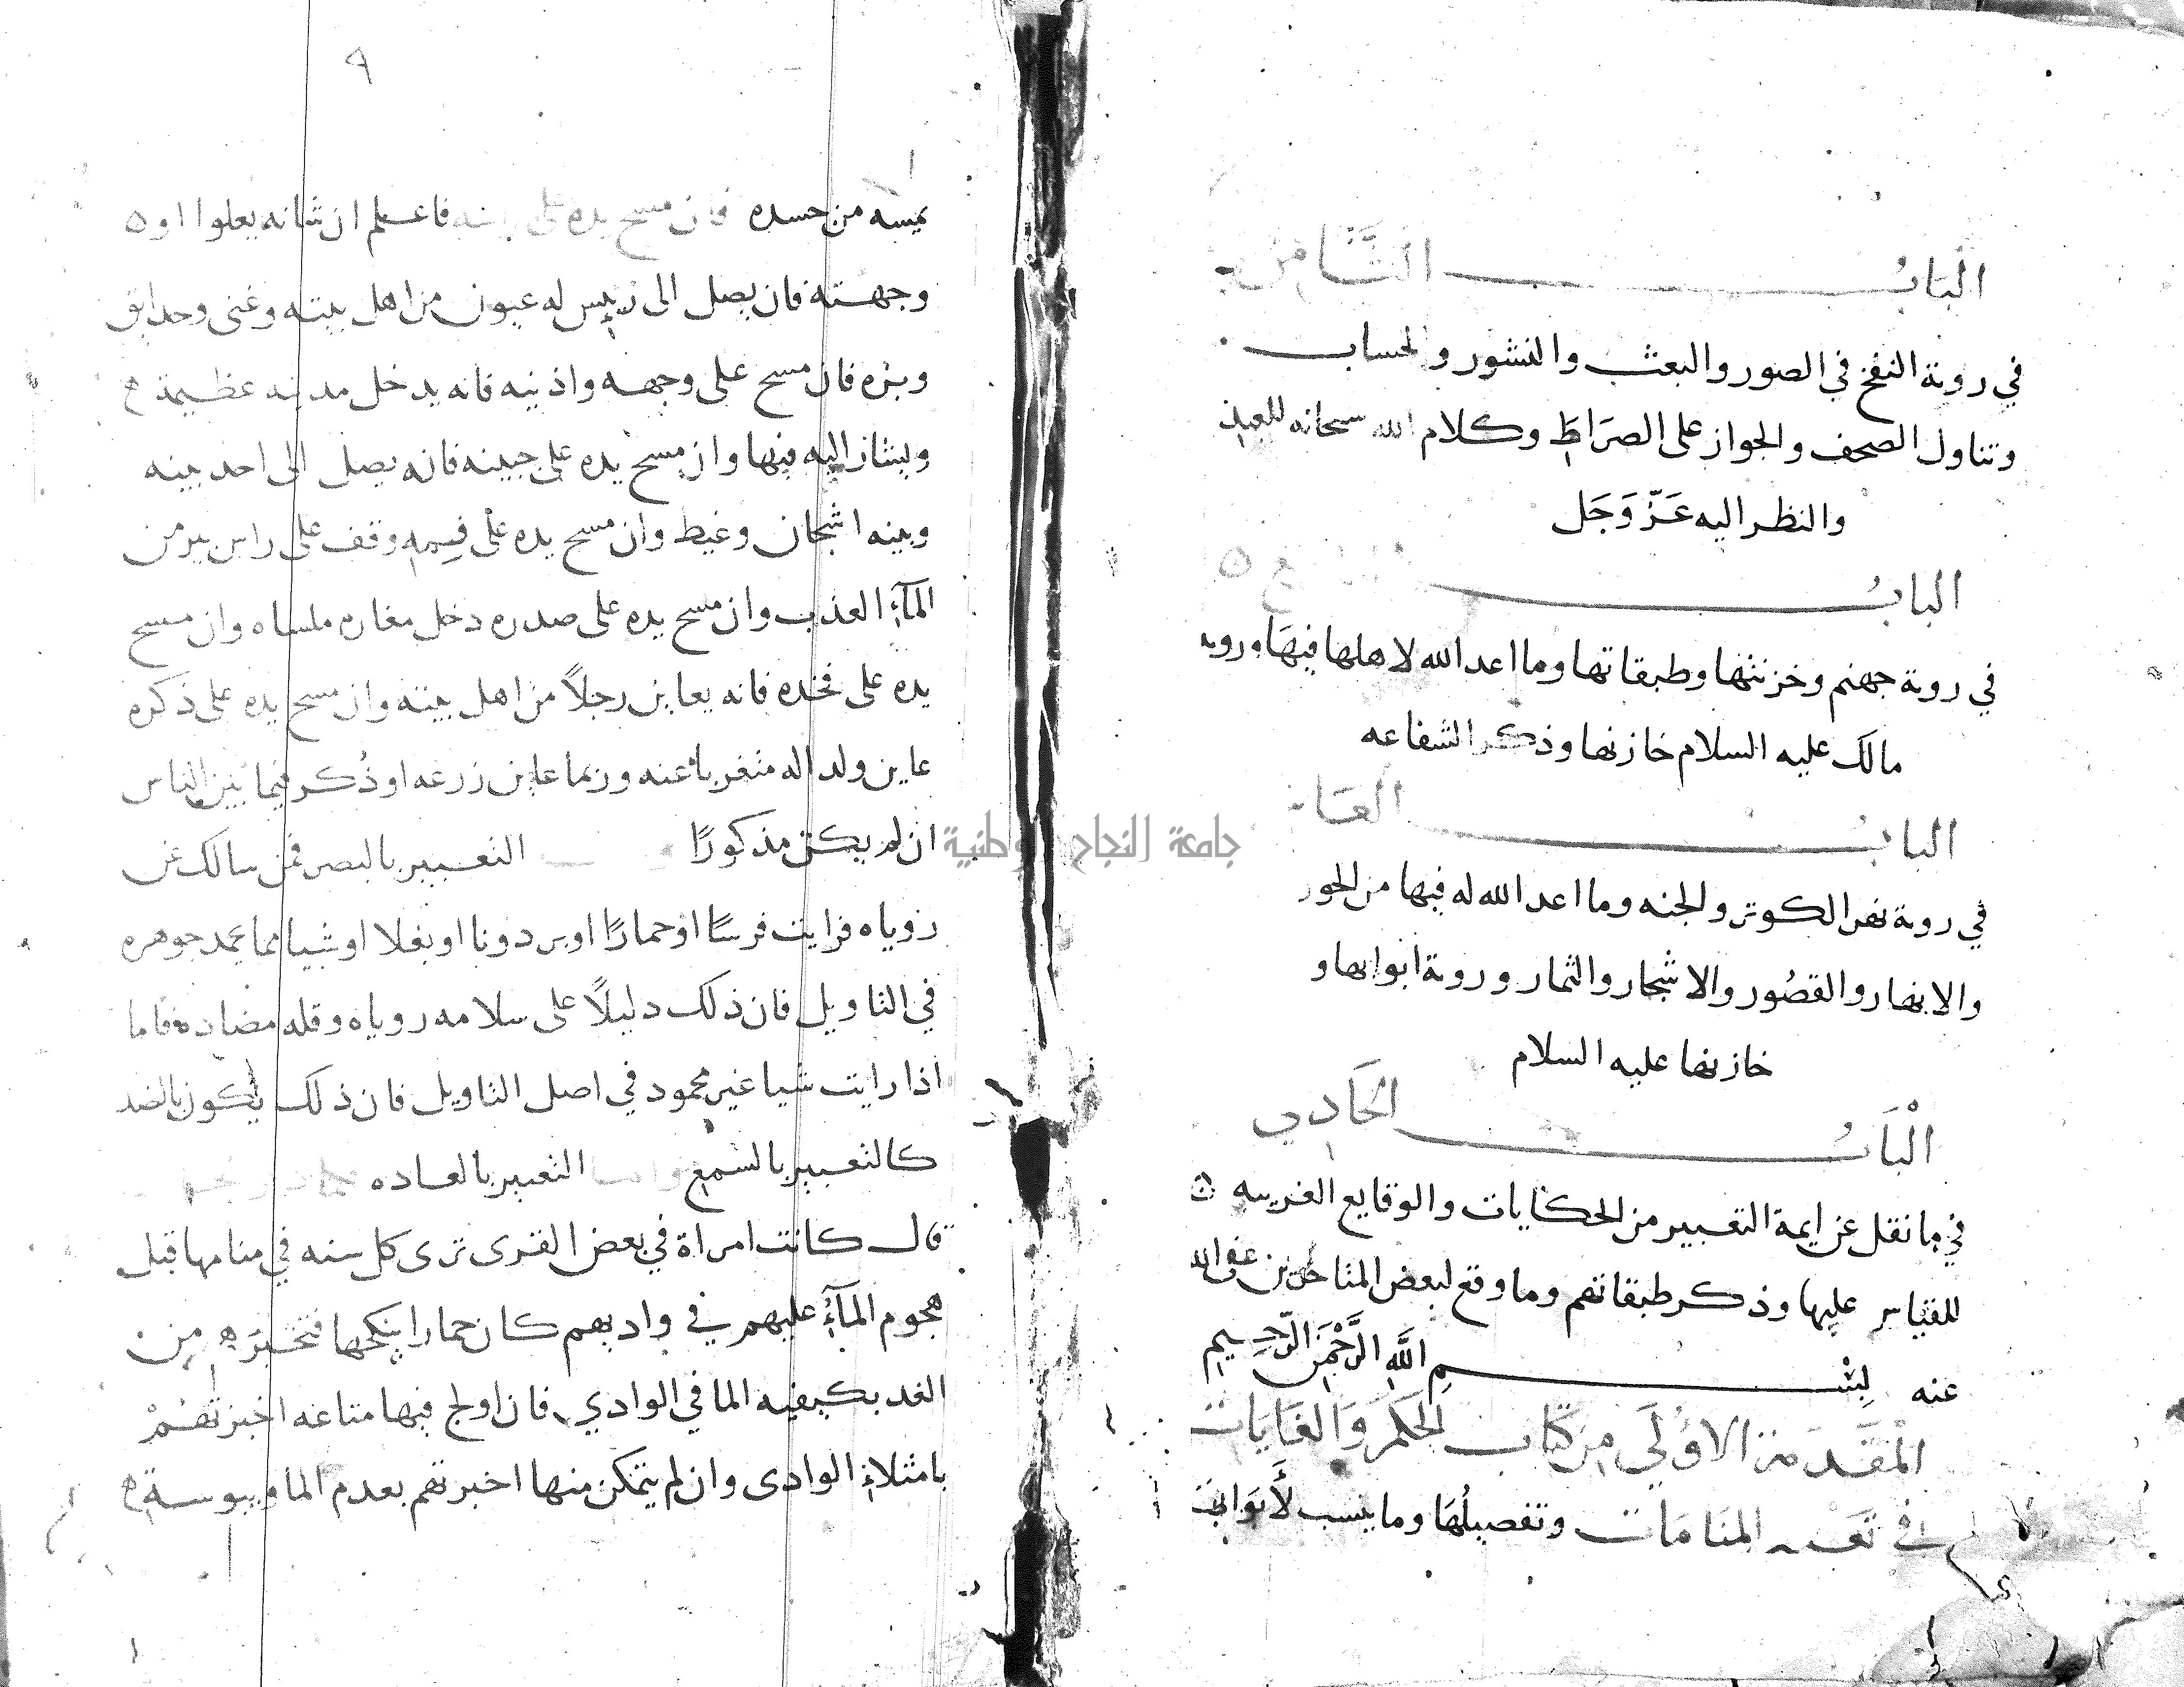 البابُ الثَّامن
في روية النفخ في الصور والبعث والنشور والحساب
وتناول الصحف والجواز على الصرَاط وكلام الله سبحانه للعبد
والنظر اليه عَزّ وَجَل
البابُ
في روية جهنم وخزنتها وطبقاتها وما اعد الله لاهلها فيهَا وروية
مالك عليه السلام خازنها وذكر الشفاعه
البابُ العَا
في روية نهر الكوثر والجنه وما اعد الله له فيها من الحور
والانهار والقصُور والاشجار والثمار وروية ابوابها و
خازنها عليه السلام
الْبَابُ الحَادي
في ما نقل عن ايمة التعبير من الحكايات والوقايع الغريبه
للقياس عليها وذكر طبقاتهم وما وقع لبعض المتاخرين عفى الله
عنه بِسْمِ اللَّهِ الرَّحْمَنِ الرَّحِيمِ
المقَدمة الاوُلَى مِن كتاب الحكَم وَالغَايَات
في تَعبير المنَامَات وتفصيلُهَا وما ينسب لأَنوَاع
جامعة النجاح الوطنية
٩
يمسه من جسده فان مسح يده على فاعلم ان شانه يعلوا او
وجهته فان يصل الى رييس له عيون من اهل بيته وغنى وحدايق
وبزه فان مسح على وجهه واذنيه فانه يدخل مدينه عظيمة
ويشار اليه فيها وان مسح يده على جبينه فانه يصل الى احد بينه
وبينه اشجان وغيظ وان مسح يده على فمه وقف على راس بير من
المآء العذب وان مسح يده على صدره دخل مغاره ملساه وان مسح
يده على فخده فانه يعاين رجلاً من اهل بيته وان مسح يده على ذكره
عاين ولدا له متغربا عنه وربما عاين زرعه او ذُكر فيما بين الناس
ان لم يكن مذكورًا التعبير بالبصر فمن سالك عن
روياه فرايت فرسًا او حمارًا او بردونا او بغلا او شيا مما يحمد جوهره
في التاويل فان ذلك دليلًا على سلامه روياه وقله مضاده فاما
اذا رايت شيا غير محمود في اصل التاويل فان ذلك يكون بالضد
كالتعبير بالسمع التعبير بالعاده
قال كانت امراة في بعض القرى ترى كل سنه في منامها قبل
هجوم المآء عليهم في واديهم كان حمارا ينكحها فتخبرهم من
الغد بكيفيه الما في الوادي فان اولج فيها متاعه اخبرتهُمْ
بامتلاء الوادى وان لم يتمكن منها اخبرتهم بعدم الما ويبوسته